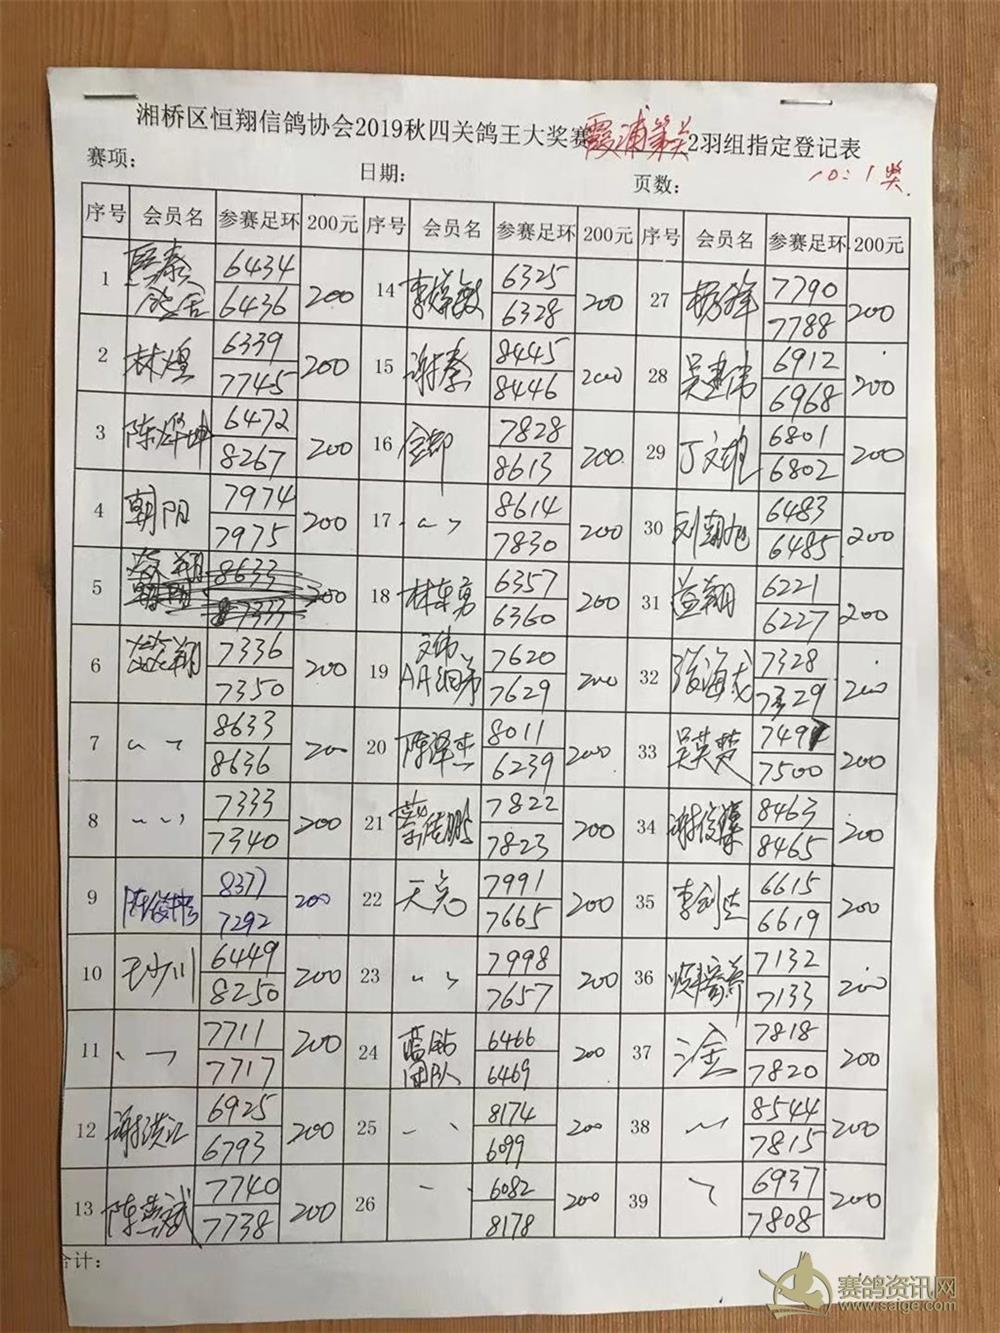 湘桥区恒翔信鸽协会2019秋四关鸽王大奖赛霞浦第关2羽组指定登记表
赛项： 日期： 页数： 10:1奖
序号 会员名 参赛足环 200元 序号 会员名 参赛足环 200元 序号 会员名 参赛足环 200元
1 6434 6436 200 14 6325 6328 200 27 杨锋 7790 7788 200
2 林煌 6339 7745 200 15 谢泰 8445 8446 200 28 吴建伟 6912 6968 200
3 陈烨坤 6472 8267 200 16 7828 8613 200 29 丁文雄 6801 6802 200
4 朝阳 7974 7975 200 17 〃 8614 7830 200 30 刘朝旭 6483 6485 200
5 蔡翔 8633 7333 200 18 林车勇 6357 6360 200 31 益翔 6221 6227 200
6 蔡翔 7336 7350 200 19 文伟 AA细弟 7620 7629 200 32 张海龙 7328 7329 200
7 〃 8633 8636 200 20 陈泽杰 8011 6239 200 33 吴英楚 7497 7500 200
8 〃 7333 7340 200 21 蔡佳鹏 7822 7823 200 34 8463 8465 200
9 8377 7292 200 22 天亮 7991 7665 200 35 李利 6615 6619 200
10 王少川 6449 8250 200 23 〃 7998 7657 200 36 7132 7133 200
11 〃 7711 7717 200 24 蓝钻团队 6466 6469 200 37 7818 7820 200
12 谢洪江 6925 6793 200 25 〃 8174 6099 200 38 〃 8544 7815 200
13 陈燕斌 7740 7738 200 26 〃 6082 8178 200 39 〃 6937 7808 200
合计：
赛鸽资讯网
www.saige.com